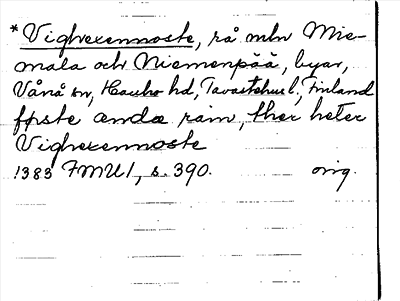 *Vighexennoste, rå mln Mie-
mala och Niemenpää, byar,
Vånå sn, Hauho hd, Tavastehus l., Finland
første ændæ räin, ther heter
Vighexennoste
1383 FMU 1, s. 390. orig.